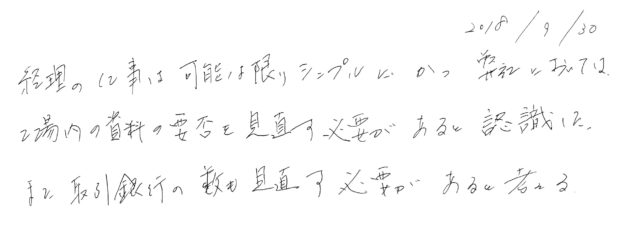 2018/9/30
経理の仕事は可能な限りシンプルに かつ 弊社においては
工場内の資料の要否を見直す必要があると認識した。
また取引銀行の数も見直す必要があると考える